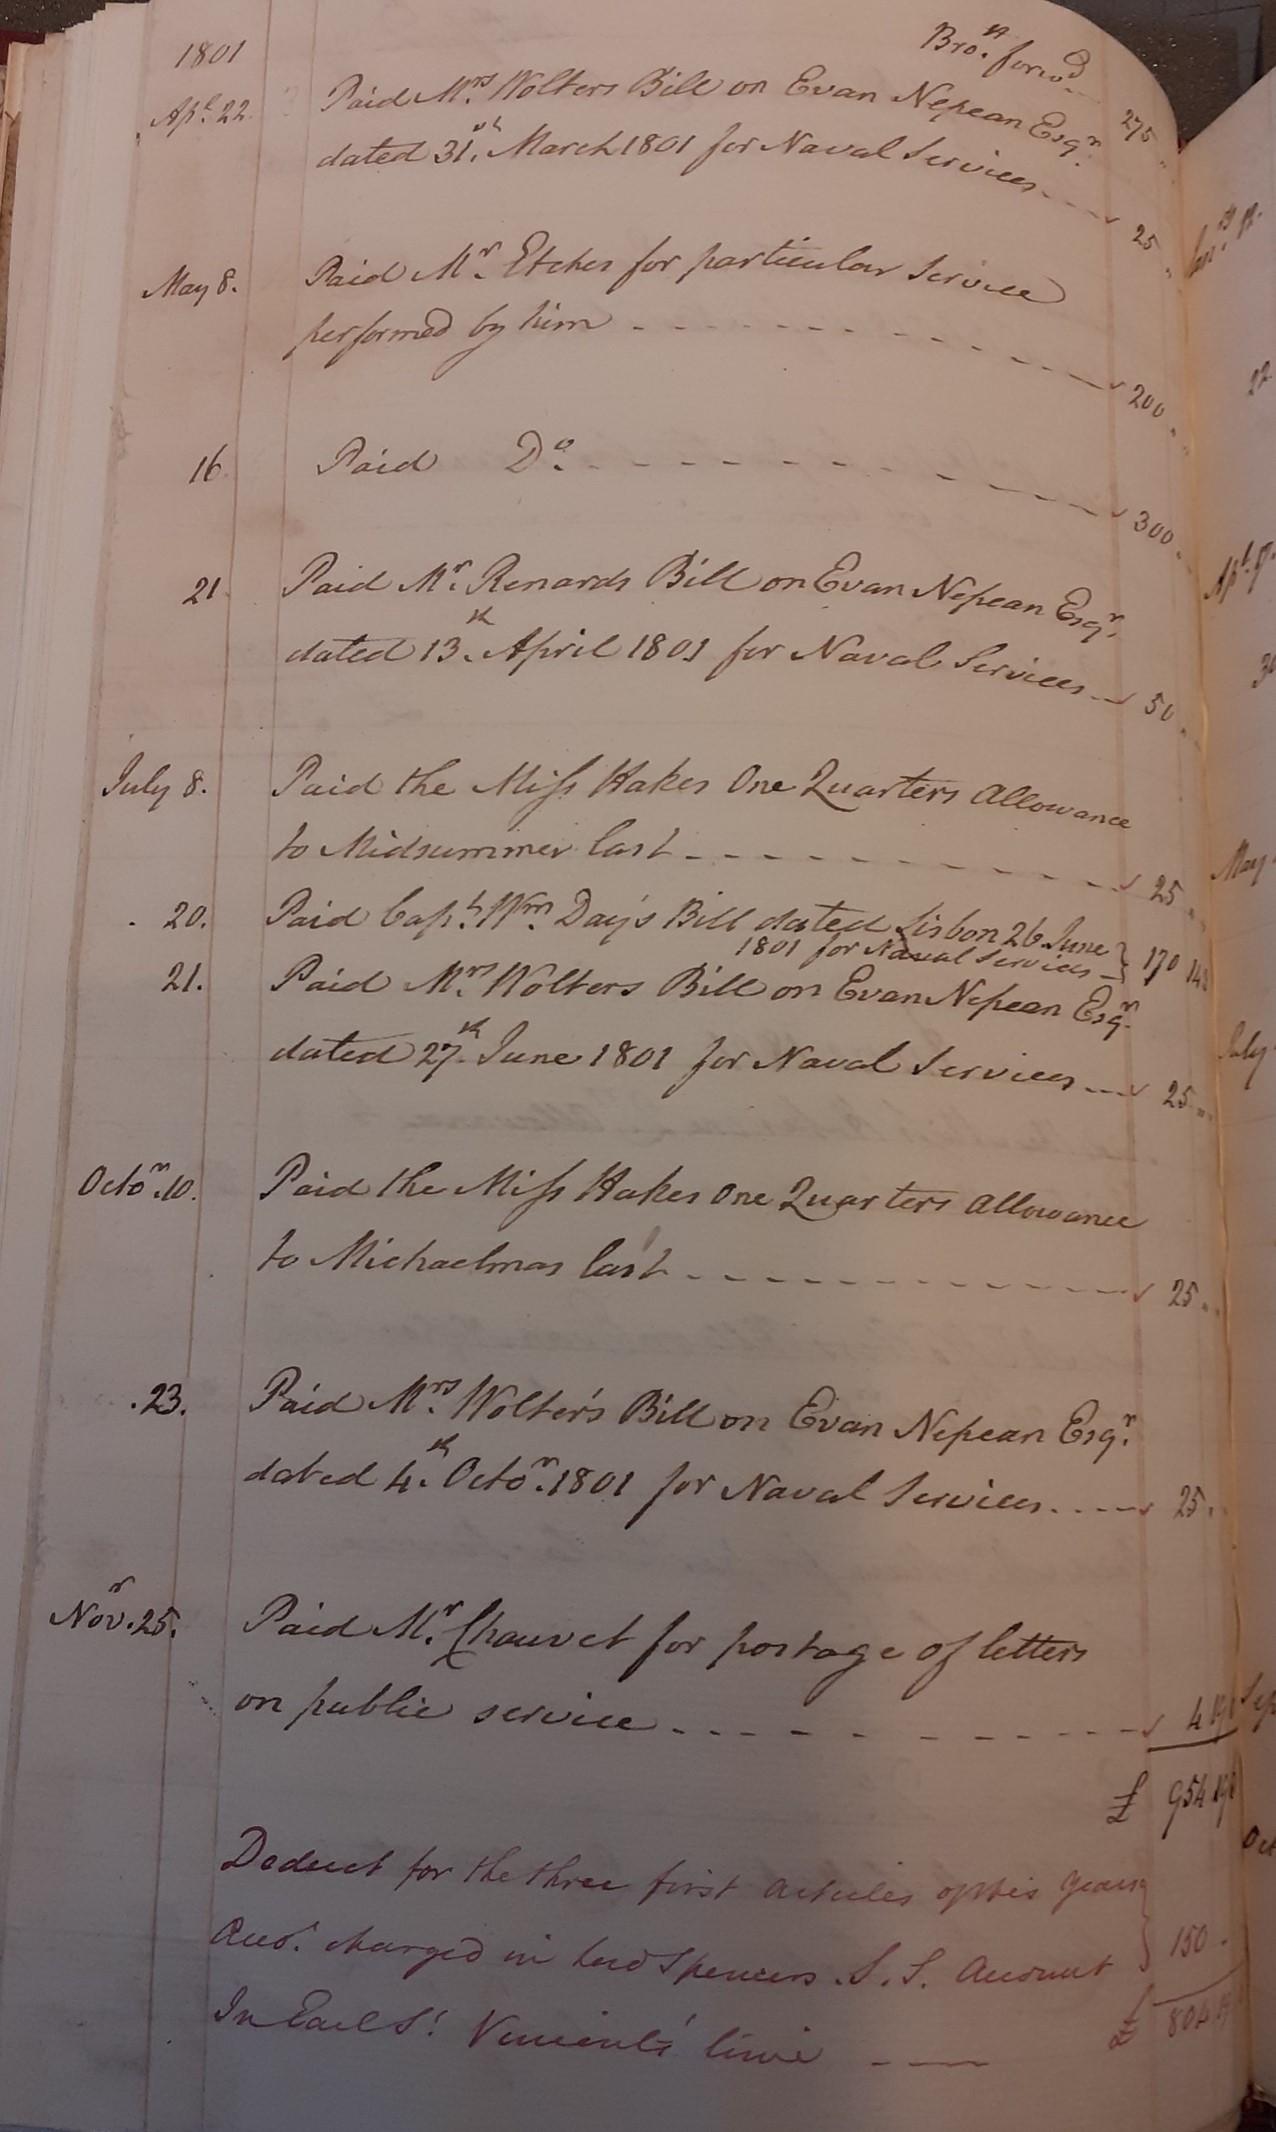 1801
Bro.t forwd. 275
Apl. 22. Paid Mrs. Wolters Bill on Evan Nepean Esqr.
dated 31st. March 1801 for Naval Services 25
May 8. Paid Mr. Etches for particular Service
performed by him 200
16 Paid Do. 300
21 Paid Mr. Renards Bill on Evan Nepean Esqr.
dated 13th. April 1801 for Naval Services 50
July 8. Paid the Miss Hakes One Quarters Allowance
to Midsummer last 25
20. Paid Capt. Wm. Day's Bill dated Lisbon 26 June
1801 for Naval Services 170 14
21. Paid Mrs. Wolters Bill on Evan Nepean Esqr.
dated 27th. June 1801 for Naval Services 25
Octor. 10. Paid the Miss Hakes One Quarters allowance
to Michaelmas last 25
23. Paid Mrs. Wolter's Bill on Evan Nepean Esqr.
dated 4th. Octor. 1801 for Naval Services 25
Novr. 25. Paid Mr. Chauvet for postage of letters
on public service 4
£ 954
Deduct for the three first articles of this years
Acco.t charged in Lord Spencers S.S. Account 150
In Earl St. Vincent's time £ 804
22
Apl.
May
July